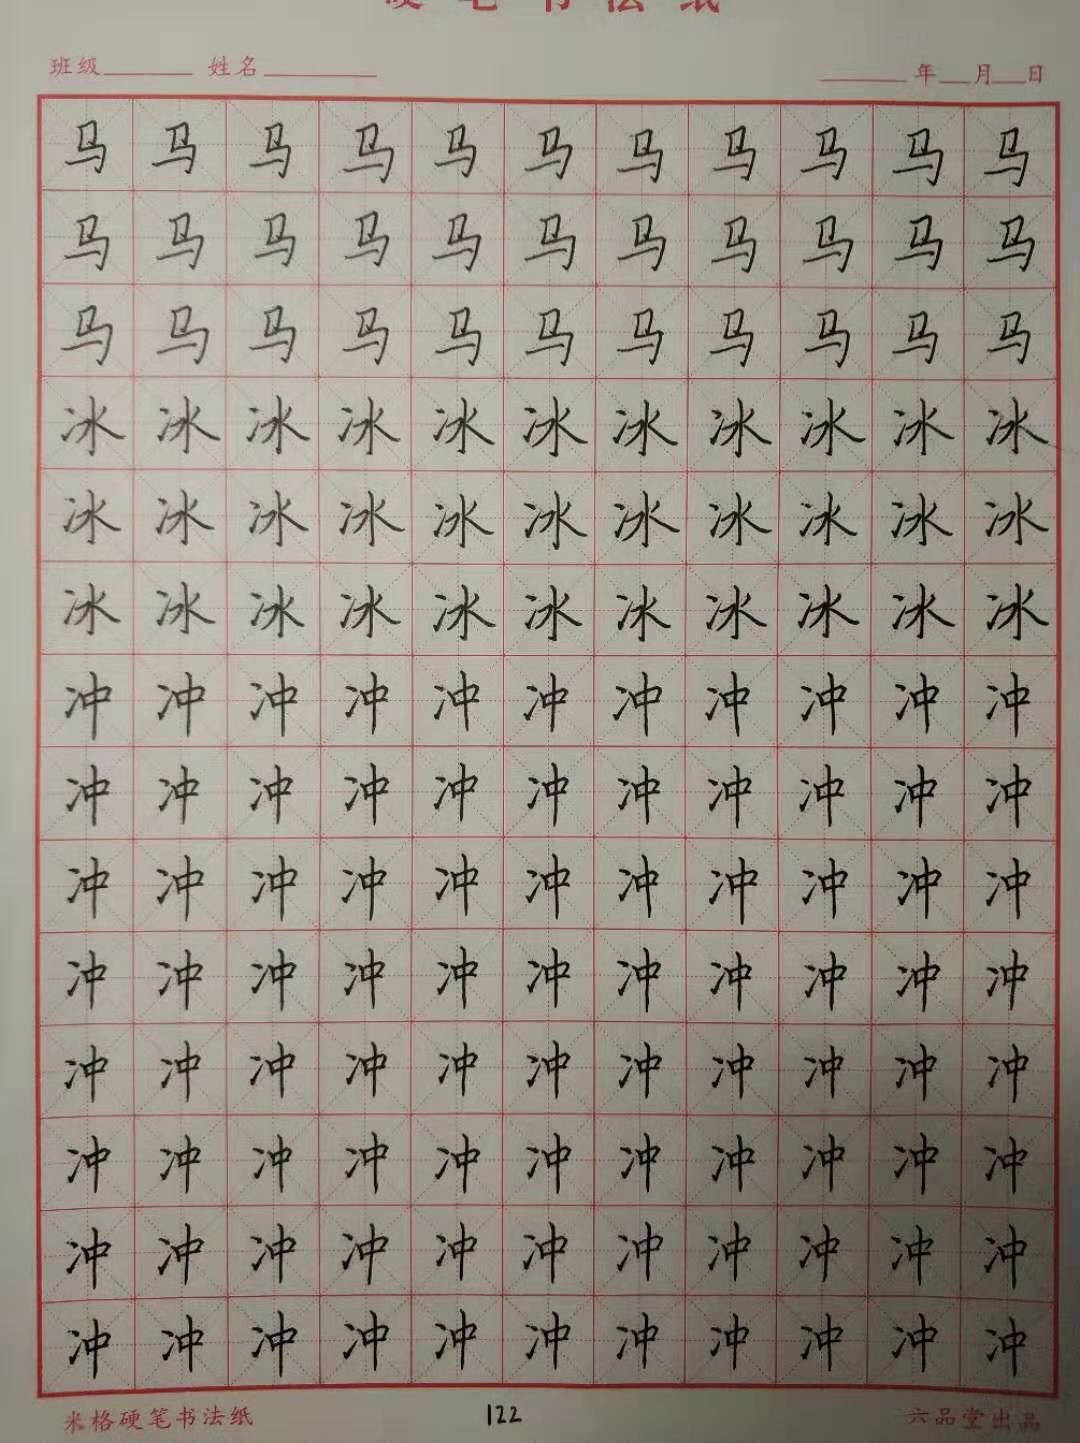 硬笔书法纸
班级 姓名 年 月 日
马马马马马马马马马马马
马马马马马马马马马马马
马马马马马马马马马马马
冰冰冰冰冰冰冰冰冰冰冰
冰冰冰冰冰冰冰冰冰冰冰
冰冰冰冰冰冰冰冰冰冰冰
冲冲冲冲冲冲冲冲冲冲冲
冲冲冲冲冲冲冲冲冲冲冲
冲冲冲冲冲冲冲冲冲冲冲
冲冲冲冲冲冲冲冲冲冲冲
冲冲冲冲冲冲冲冲冲冲冲
冲冲冲冲冲冲冲冲冲冲冲
冲冲冲冲冲冲冲冲冲冲冲
冲冲冲冲冲冲冲冲冲冲冲
米格硬笔书法纸 122 六品堂出品